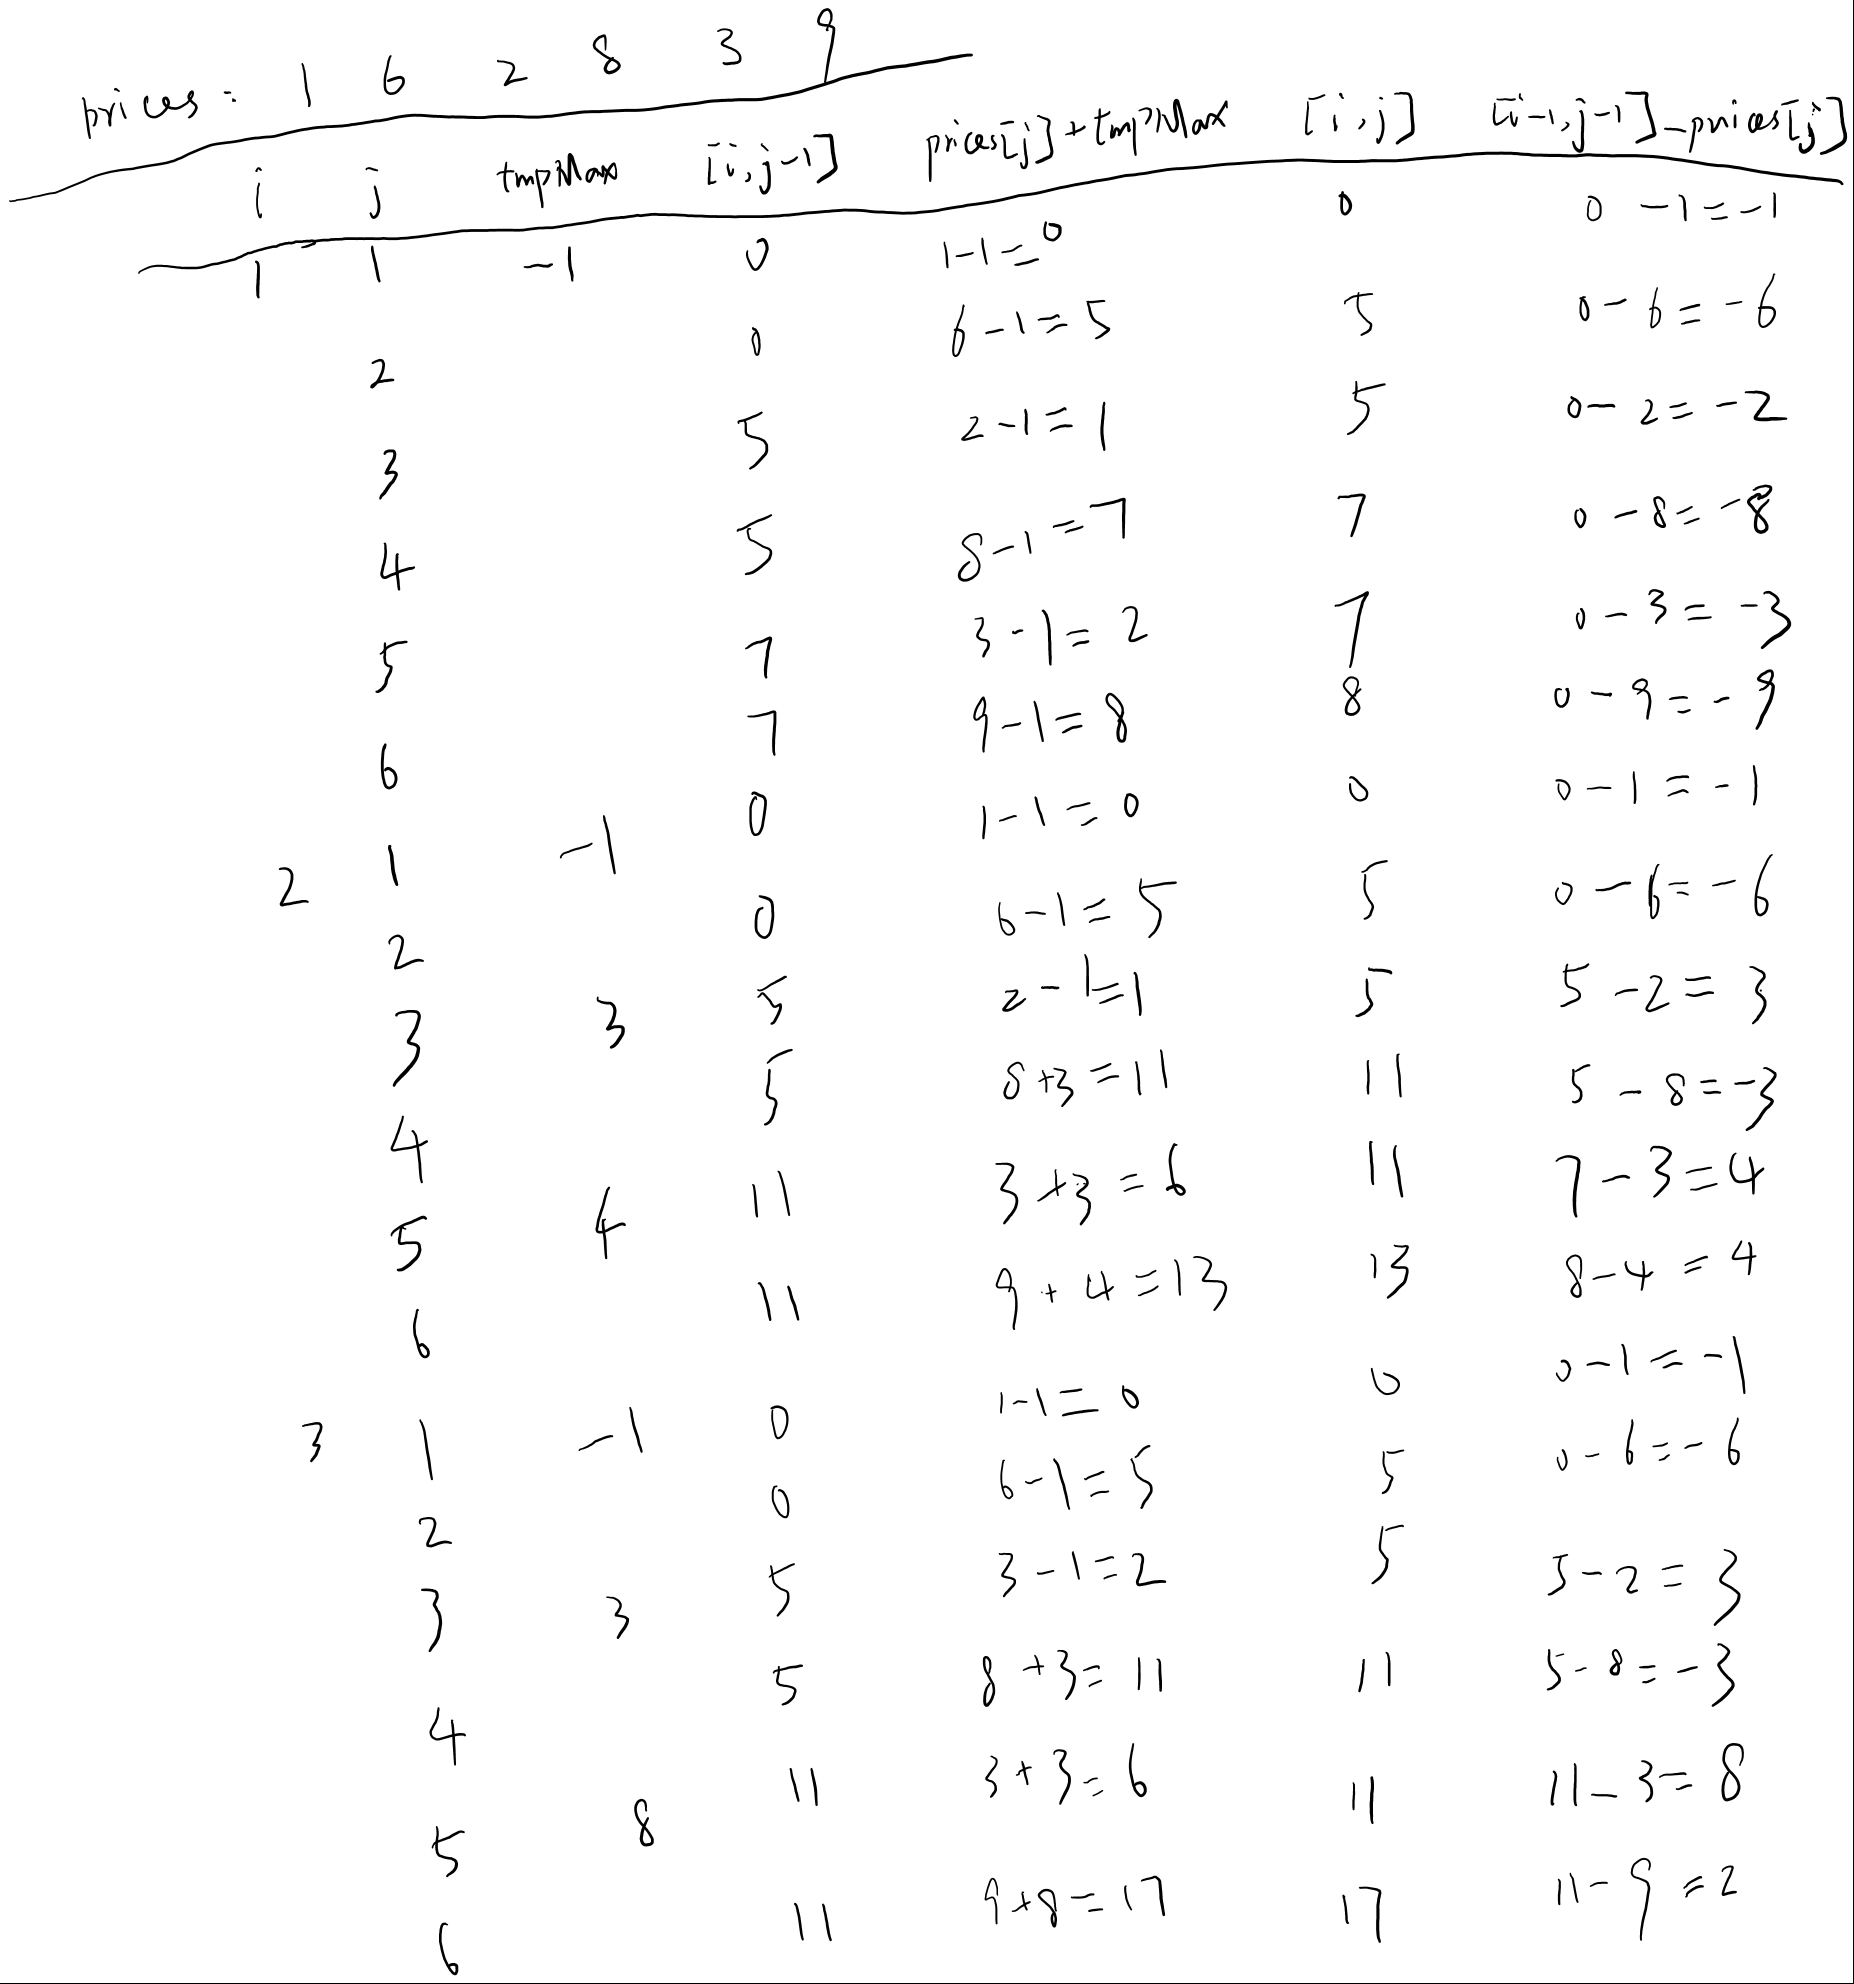 prices: 1 6 2 8 3 9
i j tmpMax [i,j-1] prices[j]+tmpMax [i,j] [i-1,j-1]-prices[j]
1 1 -1 0 1-1=0 0 0-1=-1
2 0 6-1=5 5 0-6=-6
3 5 2-1=1 5 0-2=-2
4 5 8-1=7 7 0-8=-8
5 7 3-1=2 7 0-3=-3
6 7 9-1=8 8 0-9=-9
2 1 -1 0 1-1=0 0 0-1=-1
2 0 6-1=5 5 0-6=-6
3 3 5 2-1=1 5 5-2=3
4 5 8+3=11 11 5-8=-3
5 4 11 3+3=6 11 7-3=4
6 11 9+4=13 13 8-4=4
3 1 -1 0 1-1=0 0 0-1=-1
2 0 6-1=5 5 0-6=-6
3 3 5 3-1=2 5 5-2=3
4 5 8+3=11 11 5-8=-3
5 8 11 3+3=6 11 11-3=8
6 11 9+8=17 17 11-9=2